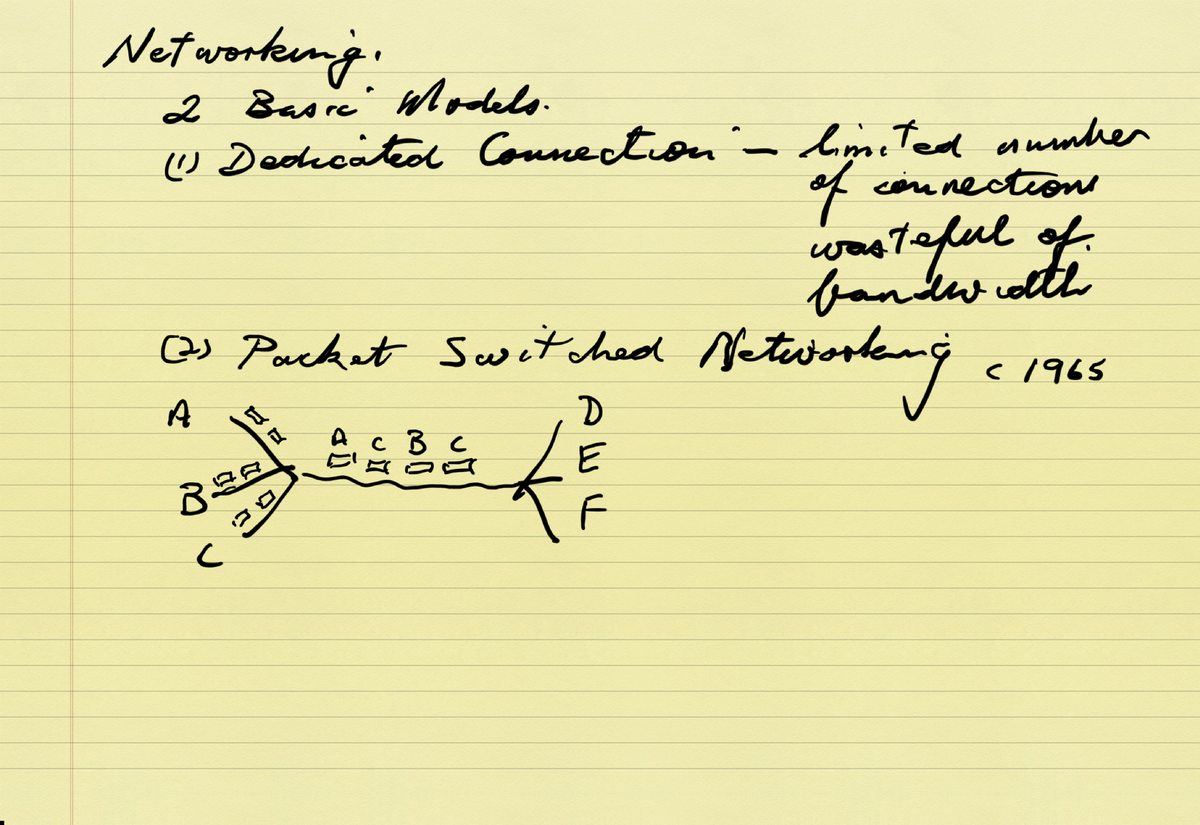 Networking.
2 Basic Models.
(1) Dedicated Connection – limited number
of connections
wasteful of
bandwidth
(2) Packet Switched Networking c 1965
A D
A C B C
E
B
F
C